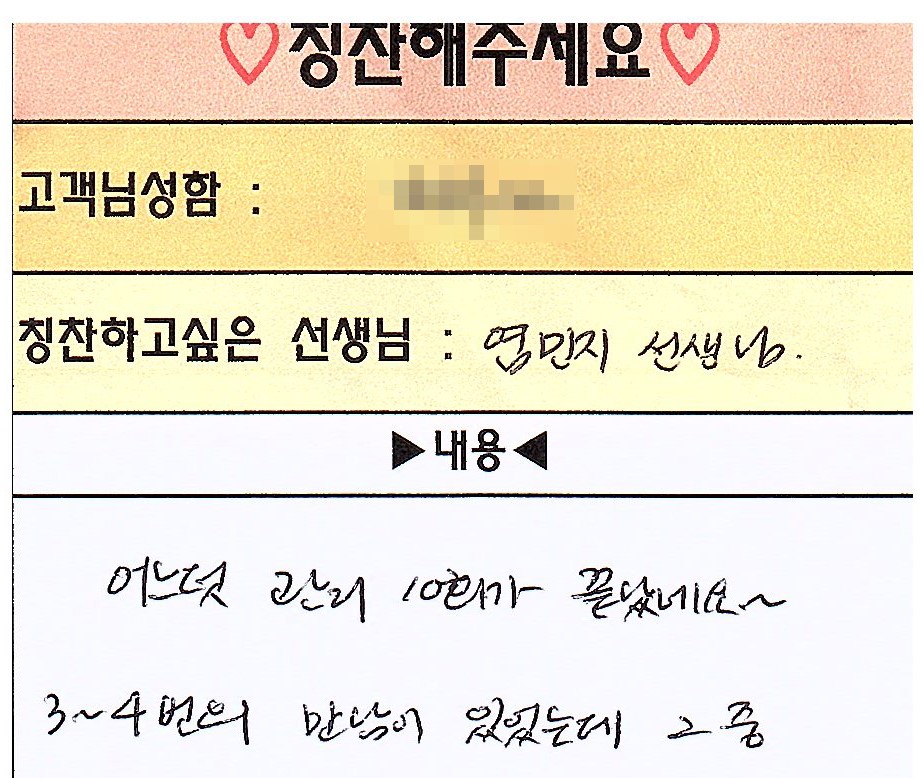 ♡칭찬해주세요♡
고객님성함 :
칭찬하고싶은 선생님 : 염민지 선생님.
▶내용◀
어느덧 관리 10회가 끝났네요~
3~4번의 만남이 있었는데 그 중